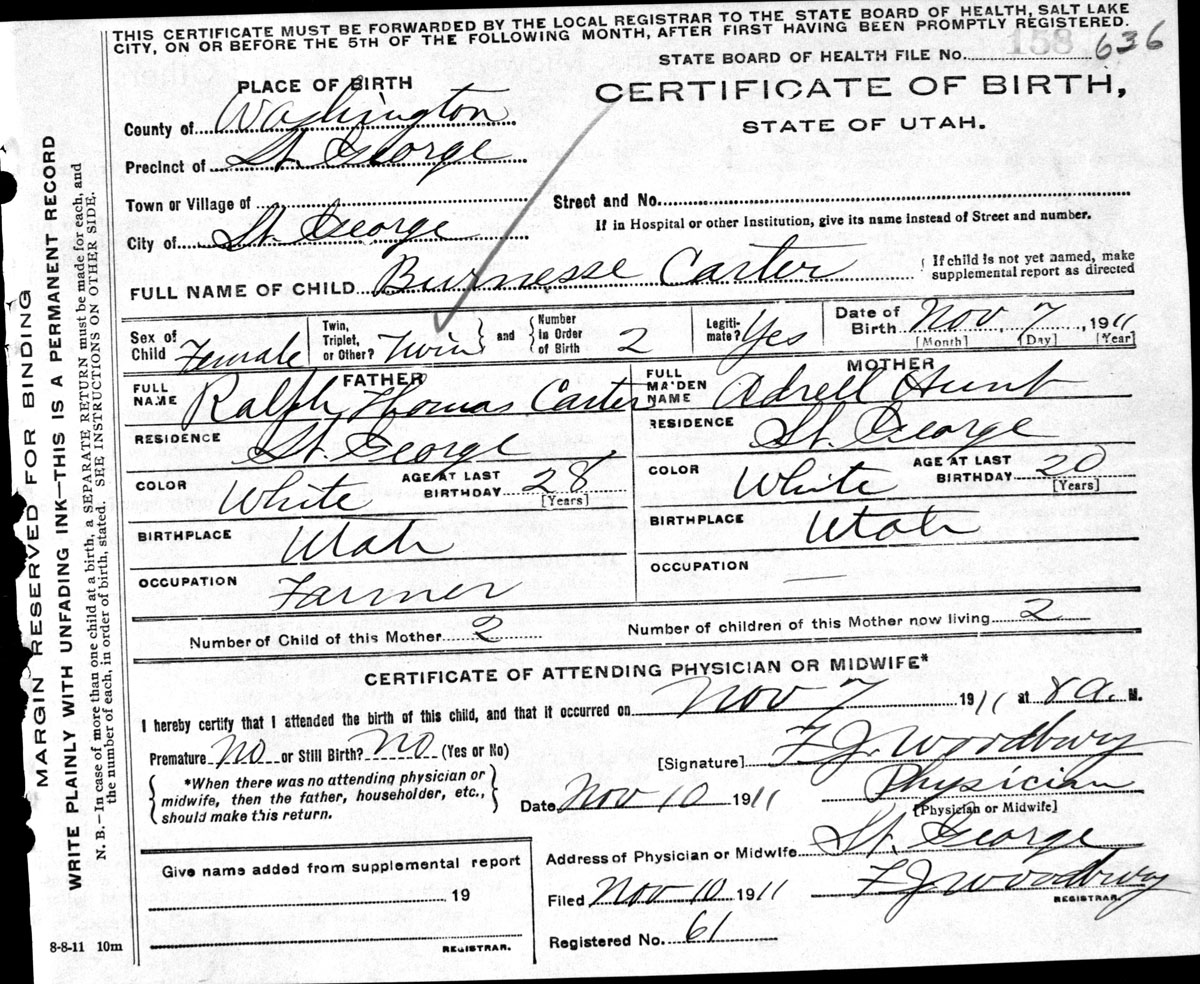 THIS CERTIFICATE MUST BE FORWARDED BY THE LOCAL REGISTRAR TO THE STATE BOARD OF HEALTH, SALT LAKE
CITY, ON OR BEFORE THE 5TH OF THE FOLLOWING MONTH, AFTER FIRST HAVING BEEN PROMPTLY REGISTERED.
STATE BOARD OF HEALTH FILE No. 158 636
PLACE OF BIRTH
CERTIFICATE OF BIRTH,
STATE OF UTAH.
County of Washington
Precinct of St. George
Town or Village of
Street and No.
If in Hospital or other Institution, give its name instead of Street and number.
City of St. George
FULL NAME OF CHILD Burnesse Carter
{ If child is not yet named, make
supplemental report as directed
Sex of Child Female
Twin, Triplet, or Other? Twin } and { Number in Order of Birth 2
Legiti-mate? Yes
Date of Birth Nov, 7, 1911
[Month] (Day) [Year]
FATHER
FULL NAME Ralph Thomas Carter
RESIDENCE St. George
COLOR White AGE AT LAST BIRTHDAY 28
[Years]
BIRTHPLACE Utah
OCCUPATION Farmer
MOTHER
FULL MAIDEN NAME Adrell Hunt
RESIDENCE St. George
COLOR White AGE AT LAST BIRTHDAY 20
[Years]
BIRTHPLACE Utah
OCCUPATION —
Number of Child of this Mother 2 Number of children of this Mother now living 2
CERTIFICATE OF ATTENDING PHYSICIAN OR MIDWIFE*
I hereby certify that I attended the birth of this child, and that it occurred on Nov 7 1911 at 8 a. M.
Premature No or Still Birth? No (Yes or No)
[Signature] F. J. Woodbury
{ *When there was no attending physician or
midwife, then the father, householder, etc.,
should make this return. }
Date Nov 10 1911
Physician
[Physician or Midwife]
Address of Physician or Midwife St. George
Filed Nov 10 1911 F J Woodbury
REGISTRAR.
Registered No. 61
Give name added from supplemental report
19
REGISTRAR.
8-8-11 10m
MARGIN RESERVED FOR BINDING
WRITE PLAINLY WITH UNFADING INK—THIS IS A PERMANENT RECORD
N. B.—In case of more than one child at a birth, a SEPARATE RETURN must be made for each, and
the number of each, in order of birth, stated. SEE INSTRUCTIONS ON OTHER SIDE.